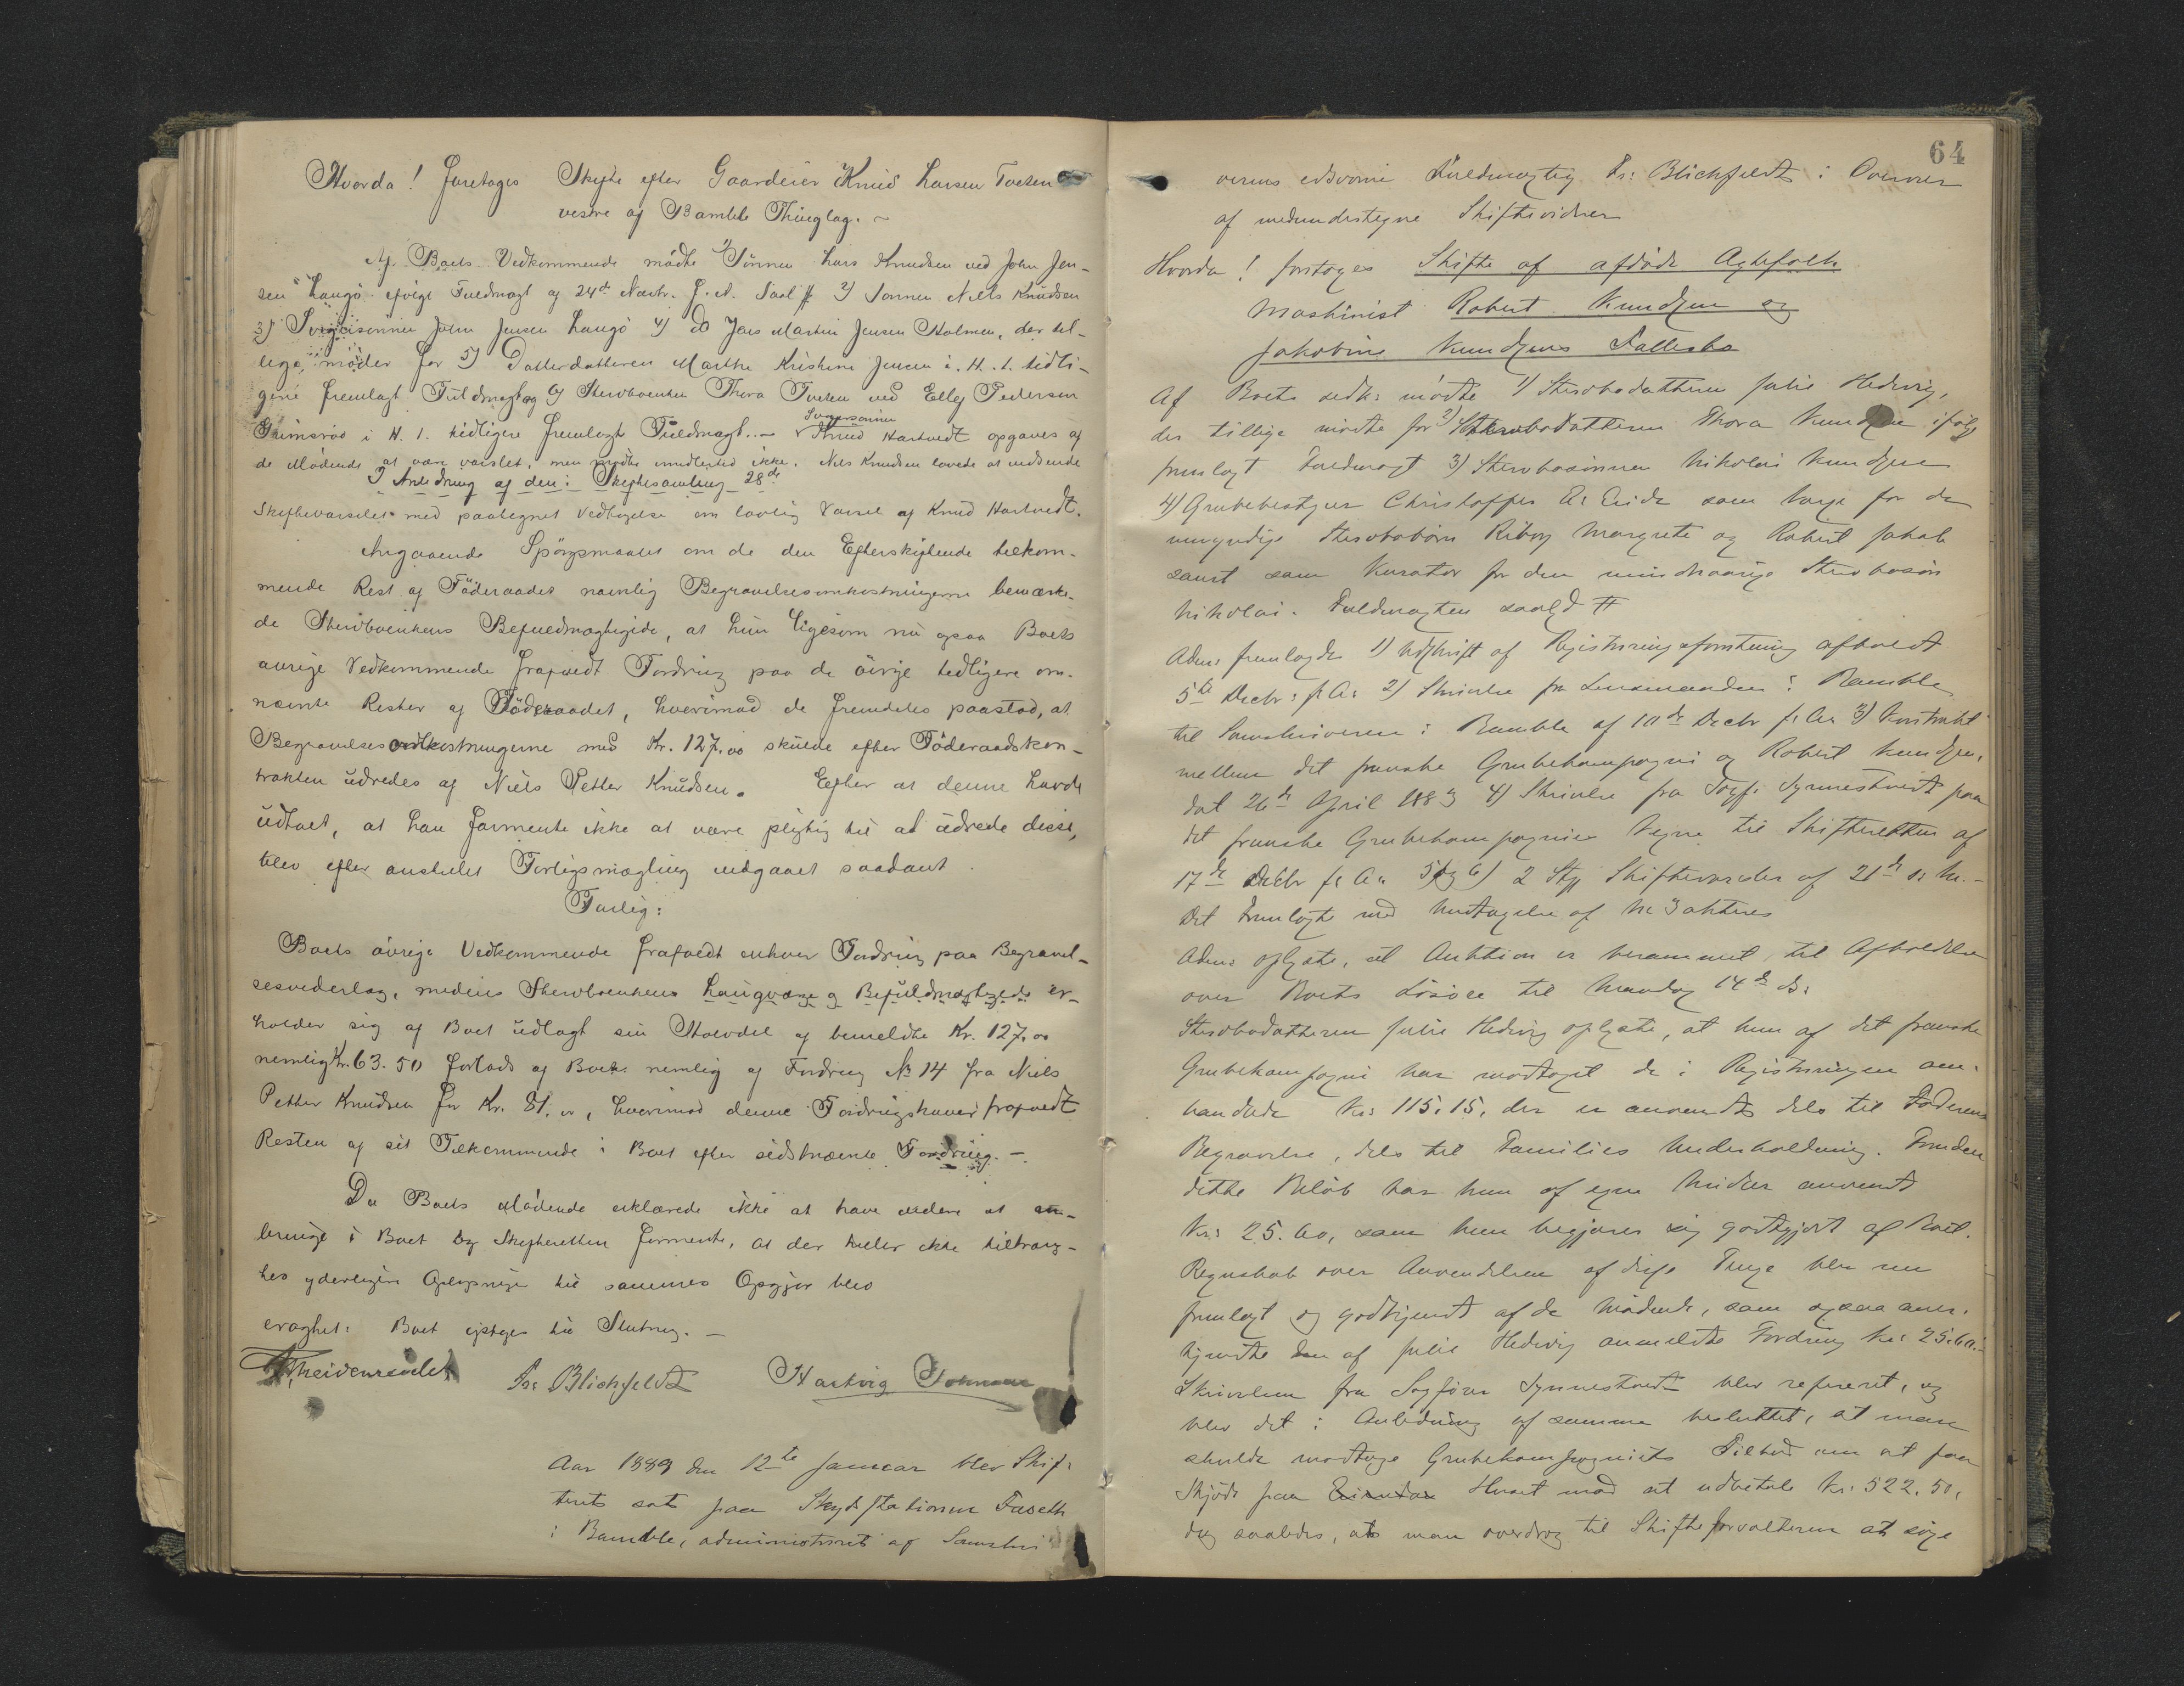 Hvorda! foretages Skifte efter Gaardeier Knud Larsen Tveten
vestre af Bamble Thinglag. ~
Af Boets Vedkommende mødte 1) Sønnen Lars Knudsen ved John Jen-
sen Langø ifølge Fuldmagt af 24de Novbr. f. A. Saal # 2) Sønnen Niels Knudsen
3) Svigersønnen John Jensen Langø 4) do Jens Martin Jensen Holmen, der til-
lige møder for 5) Datterdatteren Marthe Kristine Jensen i. H. t. tidli-
gere fremlagt Fuldmagt og 6) Stervboenken Thora Tveten ved Ellef Pedersen
Grimsrød i H. t. tidligere fremlagt Fuldmagt. ~
Svigersønnen
Knud Hartvedt opgaves af
de Mødende at være varslet, men mødte imidlertid ikke. Niels Knudsen lovede at indsende
I Anledning af den i Skiftesamling 28de
Skiftevarselet med paategnet Vedtagelse om lovlig Varsel af Knud Hartvedt.
Angaaende Spørgsmaalet om de den Efterskiftende tilkom-
mende Rest af Føderaadet navnlig Begravelsesomkostningerne bemærke-
de Stervboenkens Befuldmægtigede, at hun ligesom nu ogsaa Boets
øvrige Vedkommende frafaldt Fordring paa de øvrige tidligere om-
nævnte Rester af Føderaadet, hvorimod de fremdeles paastod, at
Begravelsesomkostningerne med Kr. 127.00 skulde efter Føderaadskon-
trakten udredes af Niels Petter Knudsen. Efter at denne havde
udtalt, at han formente ikke at være pligtig til at udrede disse,
blev efter anstillet Forligsmægling indgaaet saadant
Forlig:
Boets øvrige Vedkommende frafaldt enhver Fordring paa Begravel-
sesvederlag, medens Stervboenkens Laugværge og Befuldmægtigede er-
holder sig af Boet udlagt sin Halvdel af bemeldte Kr. 127.00
nemlig Kr. 63.50 forlods af Boets nemlig af Fordring No 14 fra Niels
Petter Knudsen for Kr. 81.00, hvorimod denne Fordringshaver frafaldt
Resten af sit Tilkommende i Boet efter sidstnævnte Fordring. -
Da Boets Mødende erklærede ikke at have videre at an-
bringe i Boet og Skifteretten formente, at der heller ikke tiltræng-
tes yderligere Oplysninger til sammes Opgjør blev
eragtet: Boet optages til Slutning. -
Fr: Blichfeldt Hartvig Johnsen
Aar 1889 den 12te Januar blev Skif-
teret sat paa Skydsstationen Fuseth
i Bamble, administreret af Sorenskri
64
verens edsvorne Fuldmægtig Fr: Blichfeldt i Overvær
af medundertegnede Skiftevidner
Hvorda! foretoges Skifte af afdøde Ægtefolk
Maskinist Robert Knudsen og
Jakobine Knudsens Fællesbo
Af Boets vedk: mødte 1) Stervbodatteren Julie Hedevig,
der tillige mødte for 2) Stervbodatteren Thora Knudsen ifølge
fremlagt Fuldmagt 3) Stervbosønnen Nikolai Knudsen
4) Grubebestyrer Christoffer A: Eeide som Værge for de
umyndige Stervbobørn Riborg Margrete og Robert Jakob
samt som Kurator for den mindreaarige Stervbosøn
Nikolai. Fuldmagten saalyd #
Adm: fremlagde 1) Udskrift af Registreringsforretning afholdt
5te Decbr: f: A: 2) Skrivelse fra Lensmanden i Bamble
til Sorenskriveren i Bamble af 10de Decbr f: A: 3) Kontrakt
mellem det franske Grubekompagni og Robert Knudsen,
dat 26de April 1883 4) Skrivelse fra Sagf: Synnestvedt paa
det franske Grubekompagnies Vegne til Skifteretten af
17de Decbr f: A: 5) og 6) 2 Stk Skiftevarsler af 21de s: M. -
Det fremlagte med Undtagelse af No 3 akteres
Adm: oplyste, at Auktion er berammet til Afholdelse
over Boets Løsøre til Mandag 14de ds:
Stervbodatteren Julie Hedevig oplyste, at hun af det franske
Grubekompagni har modtaget de i Registreringen om-
handlede Kr: 115.15, der er anvendt dels til Faderens
Begravelse, dels til Families Underholdning. Foruden
dette Beløb har hun af egne Midler anvendt
Kr: 25.60, som hun begjærer sig godtgjort af Boet.
Regnskab over Anvendelsen af disse Penge blev nu
fremlagt og godkjendt af de Mødende, som ogsaa aner-
kjendte den af Julie Hedevig anmeldte Fordring Kr: 25.60. -
Skrivelsen fra Sagfører Synnestvedt blev refereret, og
blev det i Anledning af samme besluttet, at man
skulde modtage Grubekompagniets Tilbud om at faa
Skjøde paa Huset mod at udbetale Kr: 522.50,
dog saaledes, at man overdrog til Skifteforvalteren at søge